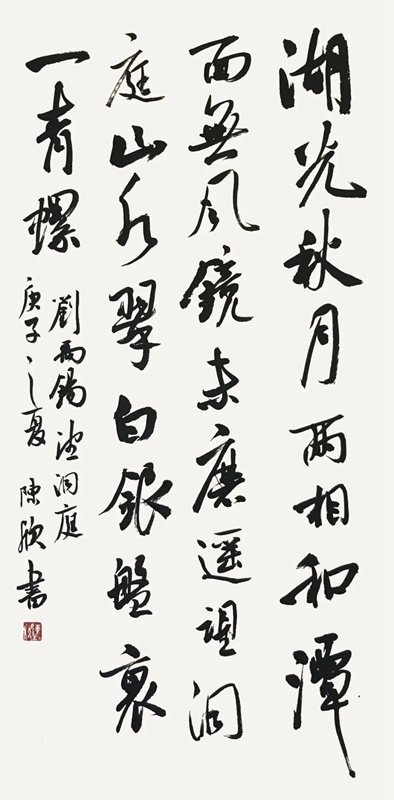 湖光秋月两相和潭
面無風鏡未磨遥望洞
庭山水翠白銀盤裏
一青螺
劉禹錫望洞庭
庚子之夏陳欣書